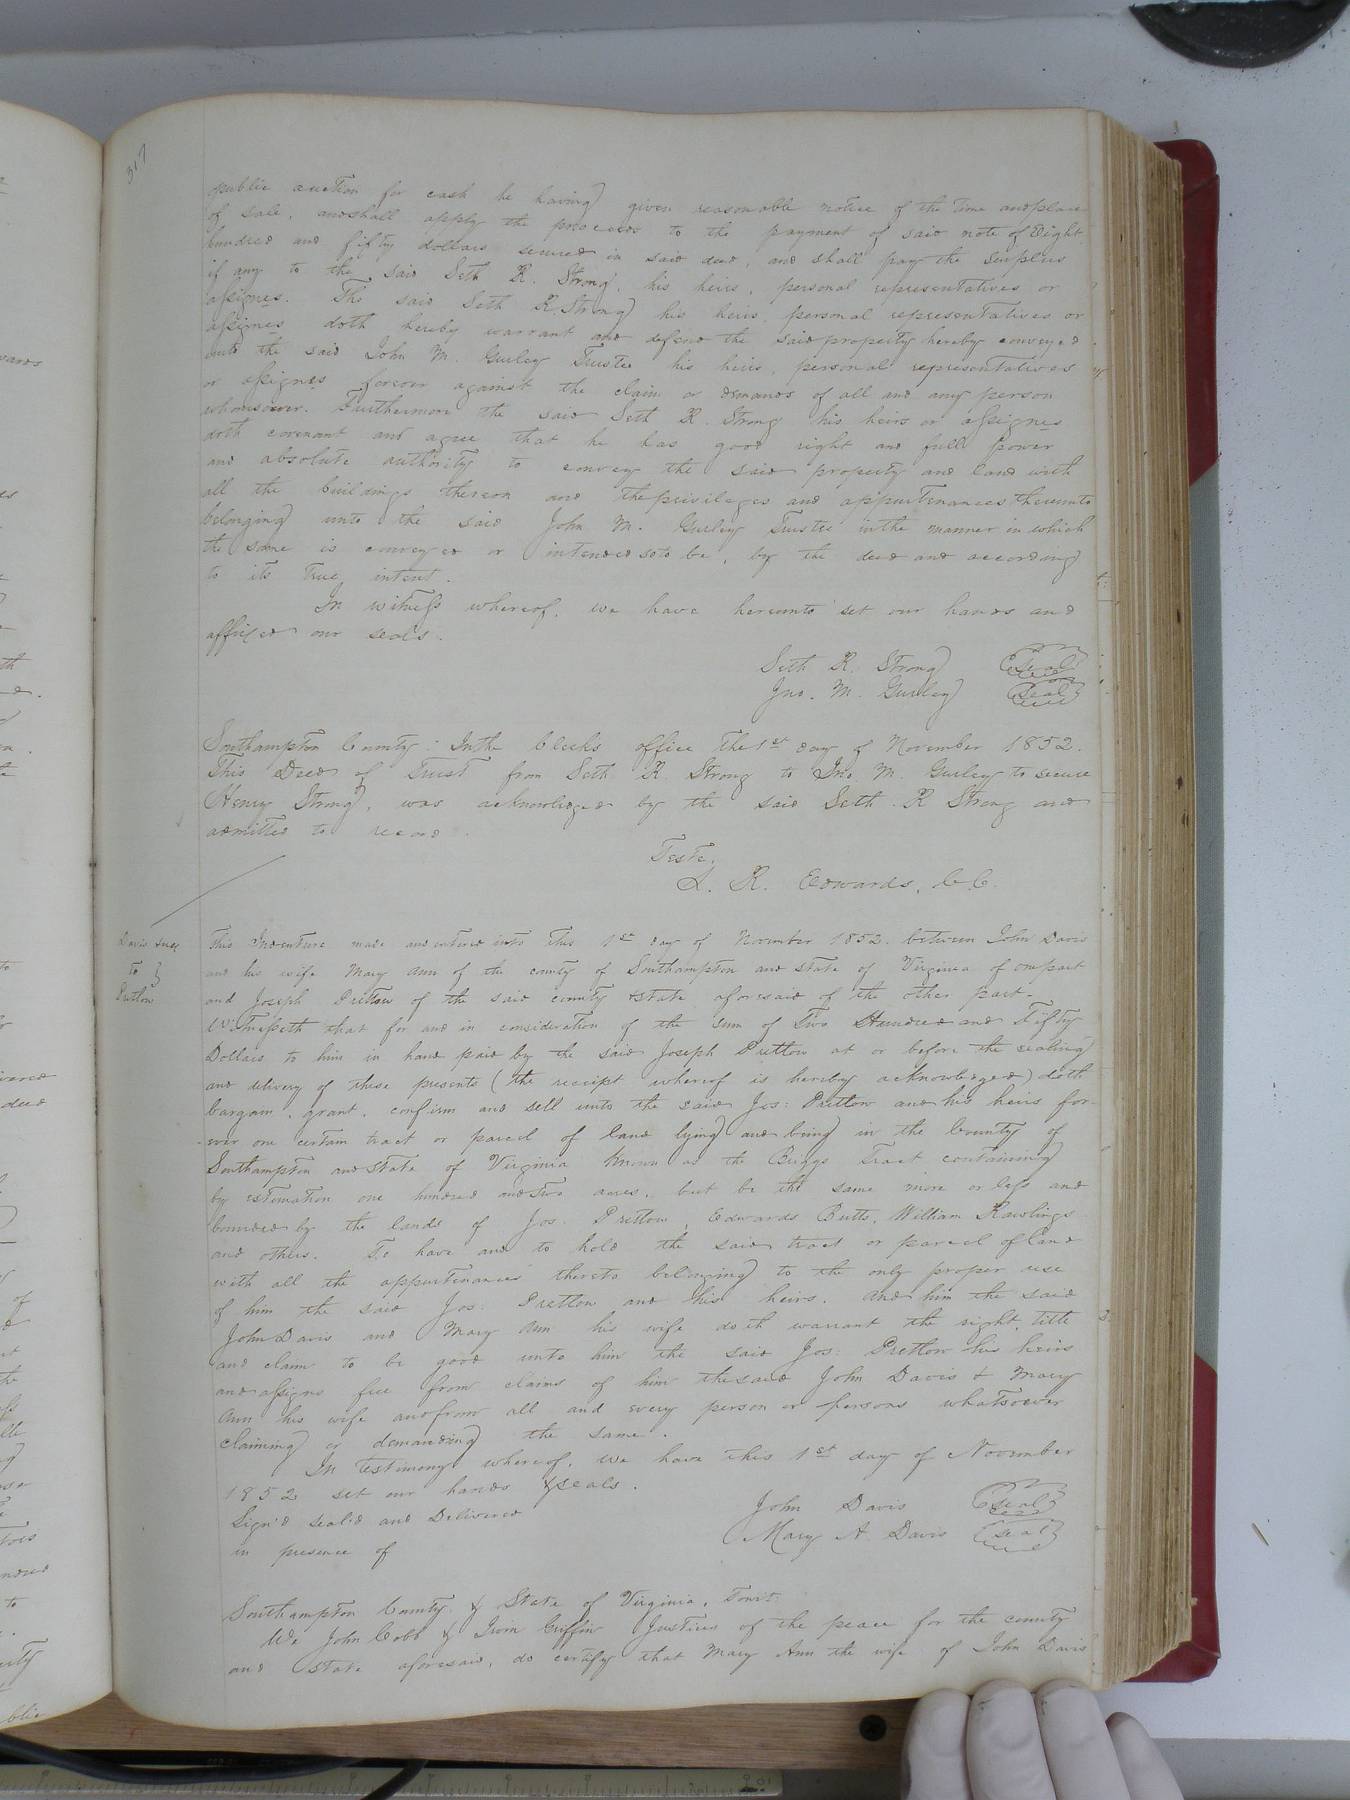 317
public auction for cash he having given reasonable notice of the time and place
of sale, and shall apply the proceeds to the payment of said note of Eight
hundred and fifty dollars secured in said deed, and shall pay the surplus
if any to the said Seth R. Strong, his heirs, personal representatives or
assignes. The said Seth R. Strong his heirs, personal representatives or
assignes doth hereby warrant and defend the said property hereby conveyed
unto the said John M. Gurley Trustee his heirs, personal representatives
or assignes forever against the claim or demands of all and any person
whomsoever. Furthermore the said Seth R. Strong his heirs or assignes
doth covenant and agree that he has good right and full power
and absolute authority to convey the said property and land with
all the buildings thereon and the privileges and appurtenances thereunto
belonging unto the said John M. Gurley Trustee in the manner in which
the same is conveyed or intended so to be, by the deed and according
to its true intent.
In witness whereof, we have hereunto set our hands and
affixed our seals.
Seth R. Strong Seal
Jno. M. Gurley Seal
Southampton County: In the Clerk's office the 1st day of November 1852.
This Deed of Trust from Seth R. Strong to Jno. M. Gurley to secure
Henry Strong, was acknowledged by the said Seth R Strong and
admitted to record.
Teste,
L. R. Edwards, C.C.
Davis &
to
Pretlow
This Indenture made and entered into this 1st day of November 1852. between John Davis
and his wife Mary Ann of the county of Southampton and state of Virginia of one part
and Joseph Pretlow of the said county & state aforesaid of the other part-
Witnesseth that for and in consideration of the sum of Two Hundred and Fifty
Dollars to him in hand paid by the said Joseph Pretlow at or before the sealing
and delivery of these presents (the receipt whereof is hereby acknowledged) doth
bargain, grant, confirm and sell unto the said Jos: Pretlow and his heirs for-
ever one certain tract or parcel of land lying and being in the County of
Southampton and State of Virginia known as the Briggs Tract containing
by estimation one hundred and two acres, but be the same more or less and
bounded by the lands of Jos: Pretlow, Edwards Butts, William Rawlings
and others. To have and to hold the said tract or parcel of land
with all the appurtenances thereto belonging to the only proper use
of him the said Jos: Pretlow and his heirs. And him the said
John Davis and Mary Ann his wife doth warrant the right, title
and claim to be good unto him the said Jos: Pretlow his heirs
and assigns free from claims of him the said John Davis & Mary
Ann his wife and from all and every person or persons whatsoever
claiming or demanding the same.
In testimony whereof, we have this 1st day of November
1852 set our hands & seals.
Sign'd seal'd and Delivered
in presence of
John Davis Seal
Mary A. Davis Seal
Southampton County & State of Virginia, Towit:
We John Cobb & Griffin Justices of the peace for the county
and State aforesaid, do certify that Mary Ann the wife of John Davis